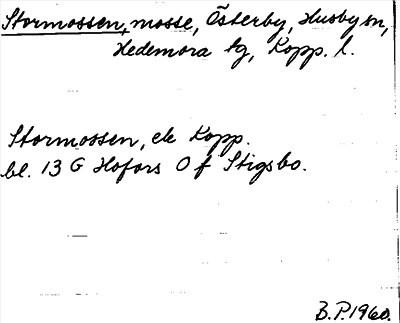 Stormossen, mosse, Österby, Husby sn,
Hedemora tg, Kopp. l.
Stormossen, ek Kopp.
bl. 13 G Hofors 0 f Stigsbo.
B.P. 1960.